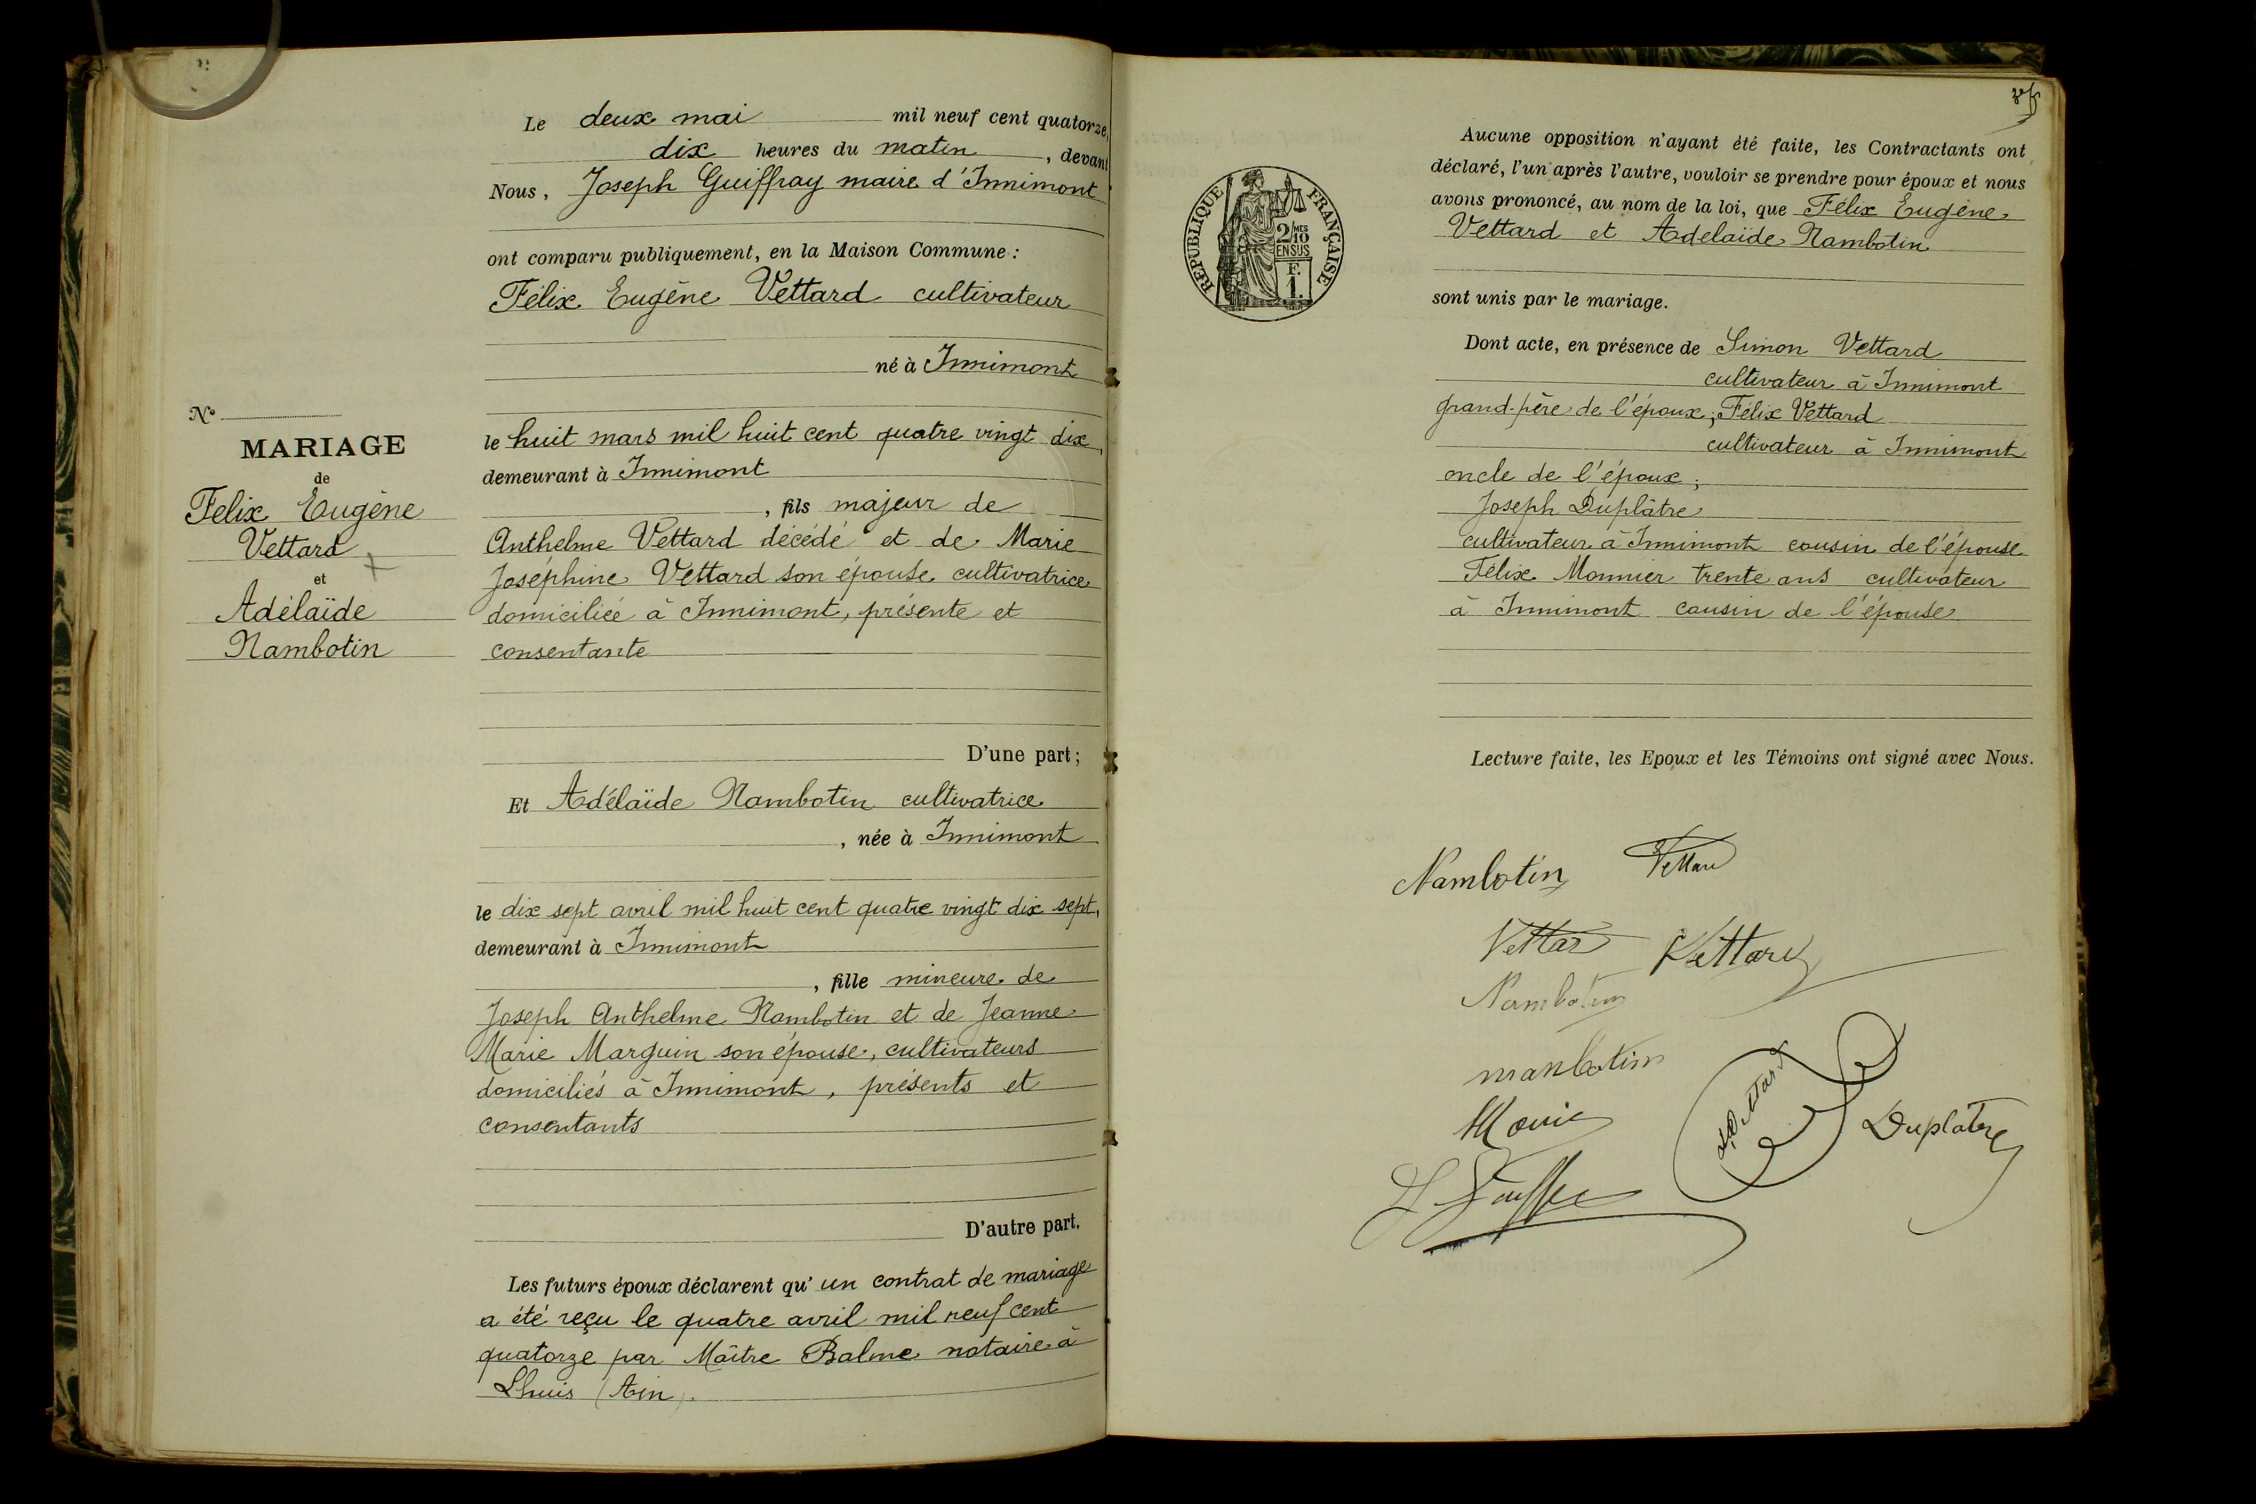 Le deux mai mil neuf cent quatorze,
dix heures du matin, devant
Nous, Joseph Guiffray maire d'Innimont
ont comparu publiquement, en la Maison Commune :
Félix Eugène Vettard cultivateur
né à Innimont
le huit mars mil huit cent quatre vingt dix,
demeurant à Innimont
, fils majeur de
Anthelme Vettard décédé et de Marie
Joséphine Vettard son épouse cultivatrice
domiciliée à Innimont, présente et
consentante
D'une part ;
Et Adélaïde Nambotin cultivatrice
, née à Innimont
le dix sept avril mil huit cent quatre vingt dix sept,
demeurant à Innimont
, fille mineure de
Joseph Anthelme Nambotin et de Jeanne
Marie Marguin son épouse, cultivateurs
domiciliés à Innimont, présents et
consentants
D'autre part.
Les futurs époux déclarent qu' un contrat de mariage
a été reçu le quatre avril mil neuf cent
quatorze par Maître Balme notaire à
Lhuis (Ain).
No
MARIAGE
de
Felix Eugène
Vettard
et
Adélaïde
Nambotin
REPUBLIQUE FRANÇAISE
2/10 MES
EN SUS
F.
1.
Aucune opposition n'ayant été faite, les Contractants ont
déclaré, l'un après l'autre, vouloir se prendre pour époux et nous
avons prononcé, au nom de la loi, que Félix Eugène
Vettard et Adelaïde Nambotin
sont unis par le mariage.
Dont acte, en présence de Simon Vettard
cultivateur à Innimont
grand-père de l'époux; Félix Vettard
cultivateur à Innimont
oncle de l'époux;
Joseph Duplâtre
cultivateur à Innimont cousin de l'épouse
Félix Monnier trente ans cultivateur
à Innimont cousin de l'épouse
Lecture faite, les Epoux et les Témoins ont signé avec Nous.
Nambotin Vettard
Vettar Vettard
Nambotin
nanbotin
Vettard
Duplâtre